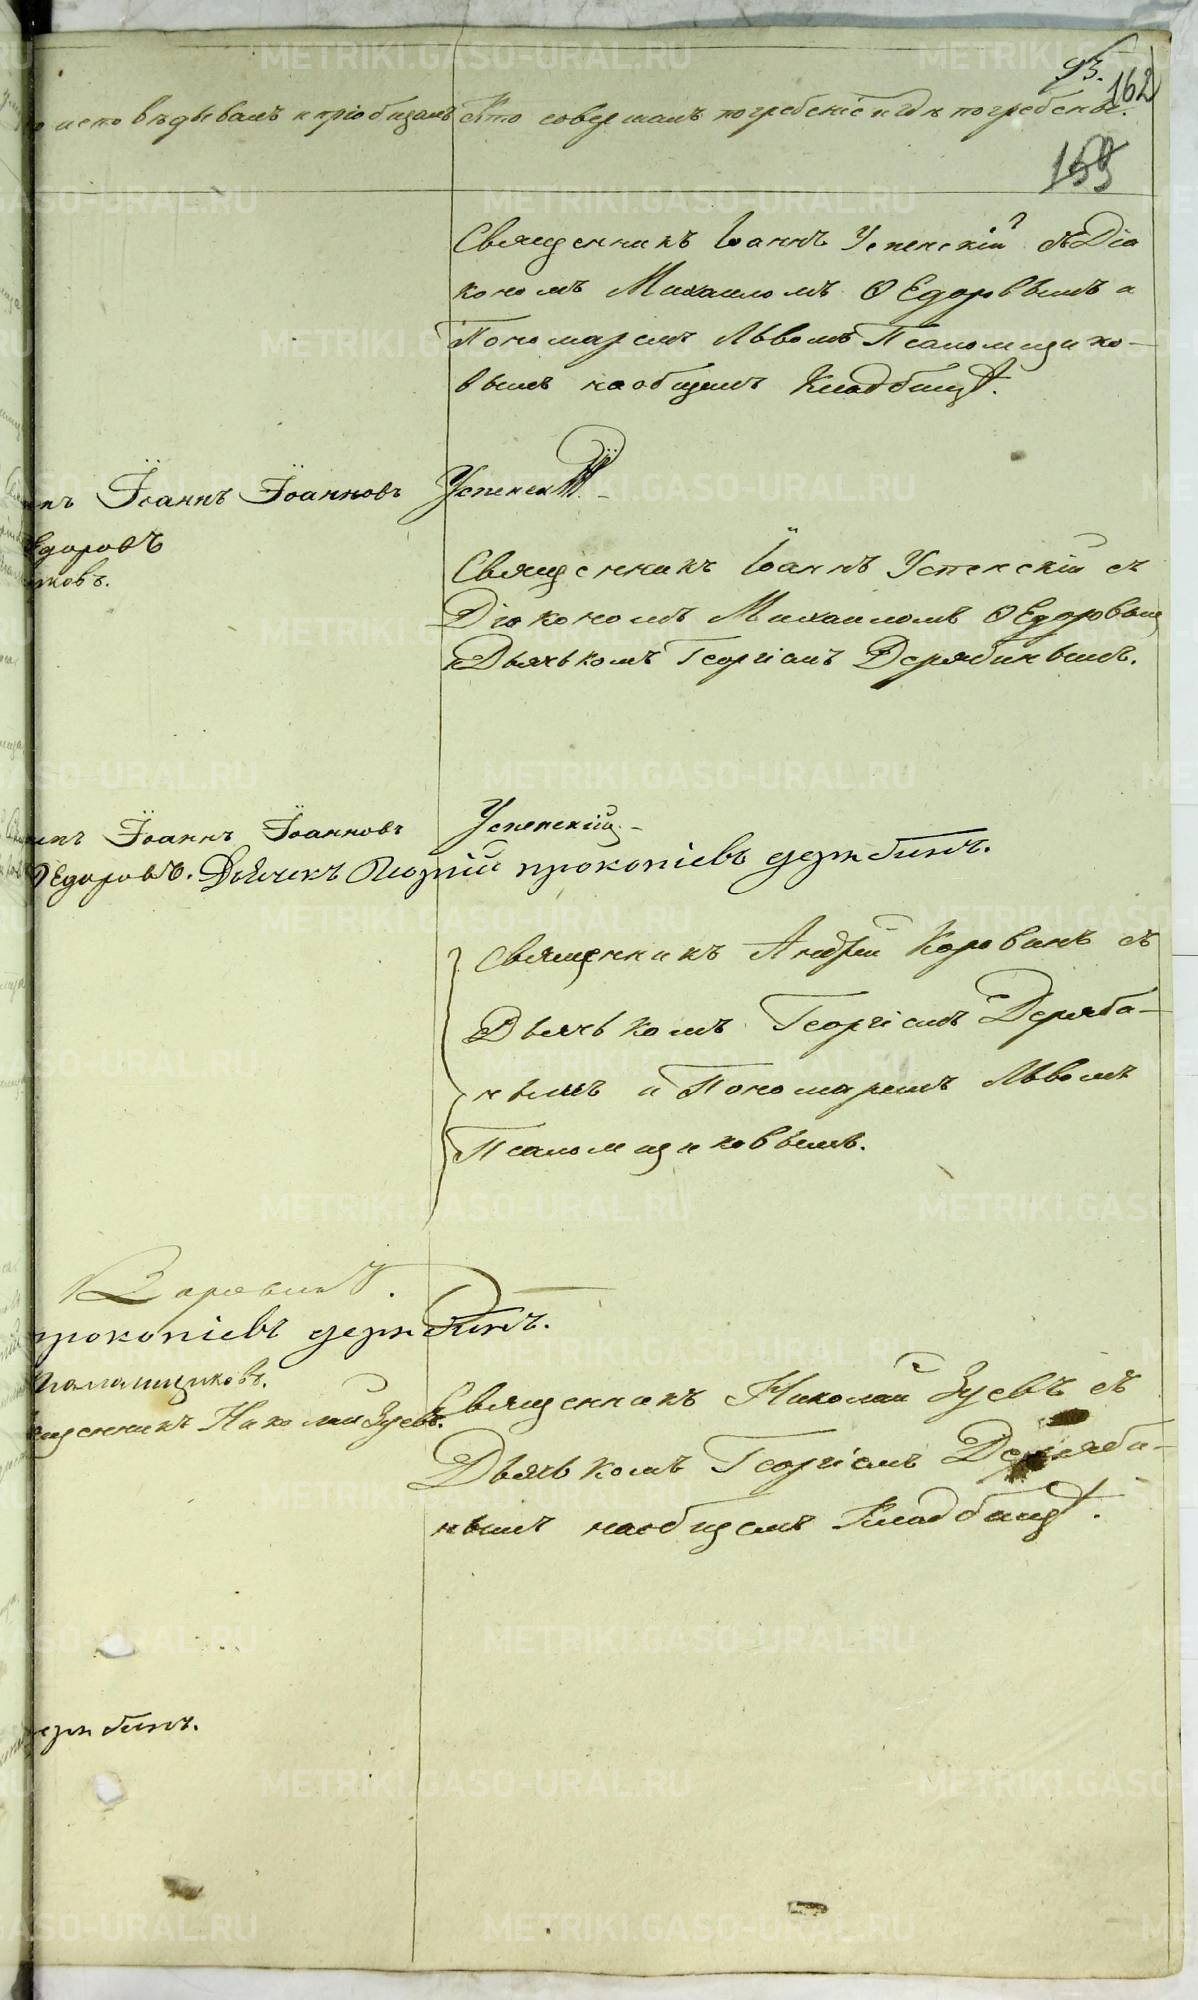 93.
162
о исповѣдывалъ и пріобщалъ
Кто совершалъ погребеніе и гдѣ погребены.
159
Священникъ Іоаннъ Успенскій съ Діа
кономъ Михаиломъ Ѳедоровымъ и
Пономаремъ Львомъ Псаломщико-
вымъ на общемъ Кладбищѣ.
икъ Іоаннъ Іоанновъ Успенскій.-
Ѳедоровъ
иковъ.
Священникъ Іоаннъ Успенскій съ
Діакономъ Михаиломъ Ѳедоровым
и Дьячькомъ Георгіемъ Дерябинымъ.
икъ Іоаннъ Іоанновъ Успенскій.-
Ѳедоровъ. Дьячекъ Георгій прокопіевъ дерябинъ.
Священникъ Андрей Коровинъ съ
Дьячькомъ Георгіемъ Деряби-
нымъ и Пономаремъ Львомъ
Псаломщиковымъ.
Коровинъ.
прокопіевъ дерябинъ.
саломщиковъ.
вященникъ Николай Зуевъ.
Священникъ Николай Зуевъ съ
Дьячькомъ Георгіемъ Деряби-
нымъ на общемъ Кладбищѣ.
ерябинъ.
METRIKI.GASO-URAL.RU